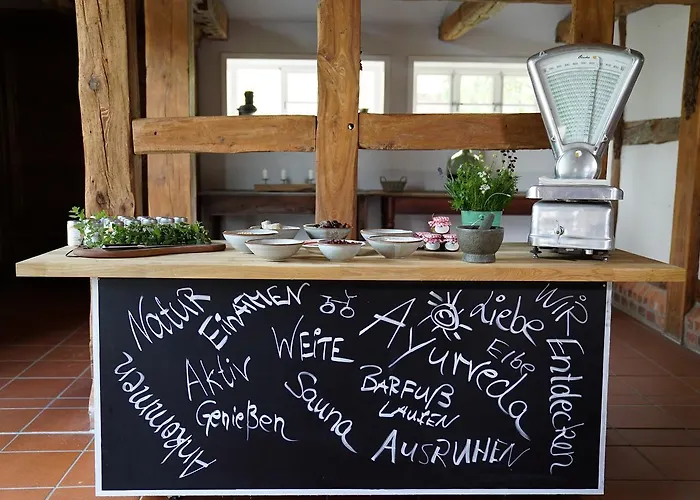 Natur
EINATMEN
WEITE
Ayurveda
Liebe
WIR
Elbe
Entdecken
Aktiv
Ankommen
Genießen
Sauna
BARFUß
LAUFEN
AUSRUHEN